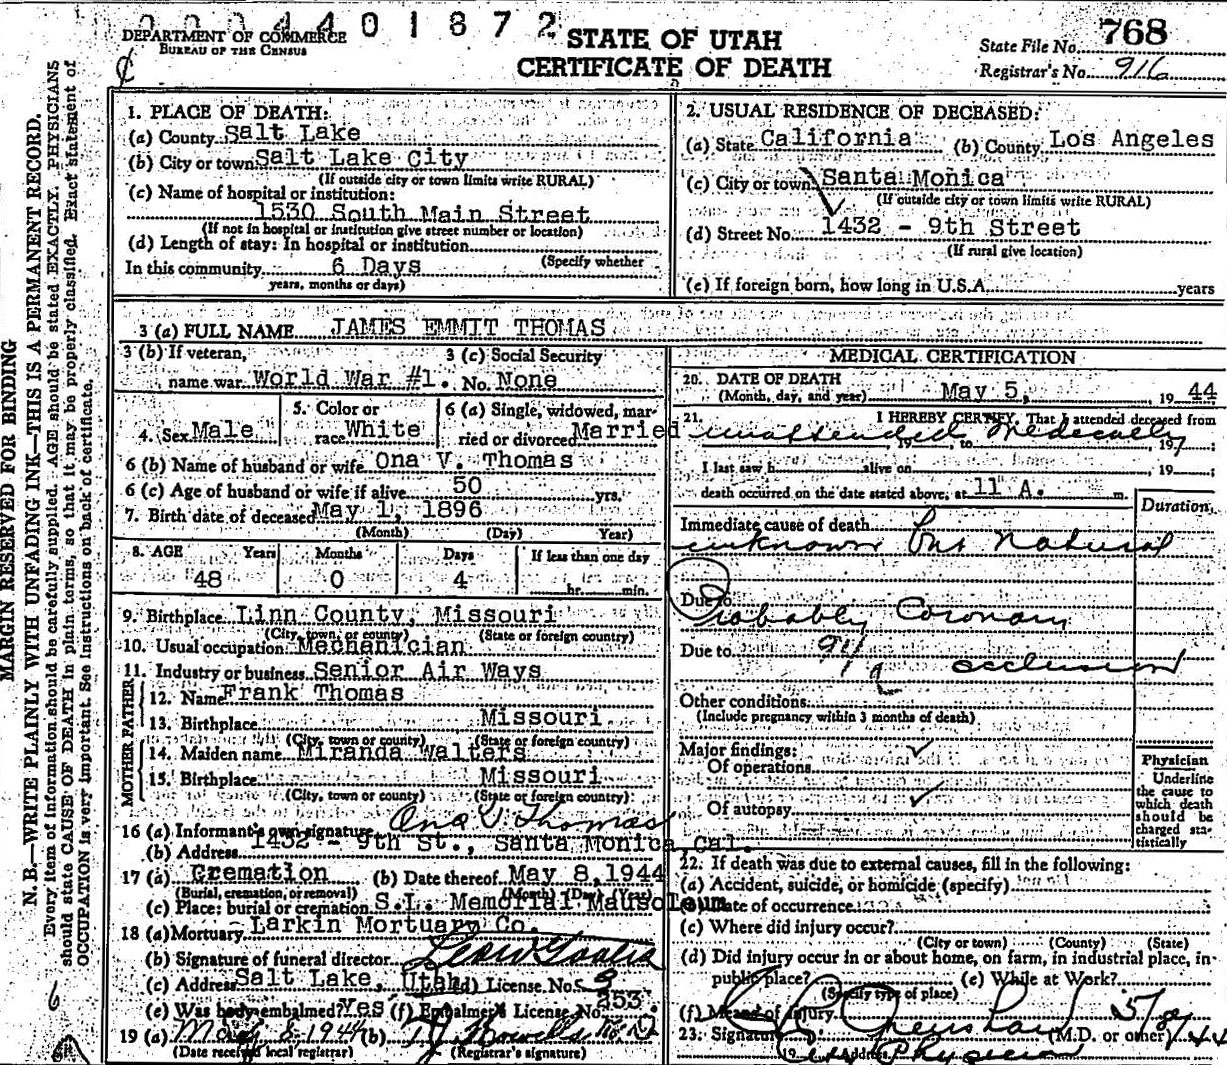 0004401872
DEPARTMENT OF COMMERCE
BUREAU OF THE CENSUS
STATE OF UTAH
CERTIFICATE OF DEATH
State File No. 768
Registrar's No. 916
MARGIN RESERVED FOR BINDING
N. B.—WRITE PLAINLY WITH UNFADING INK—THIS IS A PERMANENT RECORD.
Every item of information should be carefully supplied. AGE should be stated EXACTLY. PHYSICIANS
should state CAUSE OF DEATH in plain terms, so that it may be properly classified. Exact statement of
OCCUPATION is very important. See instructions on back of certificate.
1. PLACE OF DEATH:
(a) County Salt Lake
(b) City or town Salt Lake City
(If outside city or town limits write RURAL)
(c) Name of hospital or institution:
1530 South Main Street
(If not in hospital or institution give street number or location)
(d) Length of stay: In hospital or institution
(Specify whether
In this community 6 Days
years, months or days)
2. USUAL RESIDENCE OF DECEASED:
(a) State California (b) County Los Angeles
(c) City or town Santa Monica
(If outside city or town limits write RURAL)
(d) Street No. 1432 - 9th Street
(If rural give location)
(e) If foreign born, how long in U.S.A. years
3 (a) FULL NAME JAMES EMMIT THOMAS
3 (b) If veteran,
name war World War #1.
3 (c) Social Security
No. None
4. Sex Male
5. Color or
race White
6 (a) Single, widowed, mar-
ried or divorced Married
6 (b) Name of husband or wife Ona V. Thomas
6 (c) Age of husband or wife if alive 50 yrs.
7. Birth date of deceased May 1, 1896
(Month) (Day) Year)
8. AGE Years Months Days If less than one day
48 0 4 hr. min.
9. Birthplace Linn County, Missouri
(City, town, or county) (State or foreign country)
10. Usual occupation Mechanician
11. Industry or business Senior Air Ways
FATHER
12. Name Frank Thomas
13. Birthplace Missouri
(City, town or county) (State or foreign country)
MOTHER
14. Maiden name Miranda Walters
15. Birthplace Missouri
(City, town or county) (State or foreign country)
16 (a) Informant's own signature Ona V Thomas
(b) Address 1432 - 9th St., Santa Monica, Cal.
17 (a) Cremation (b) Date thereof May 8, 1944
(Burial, cremation, or removal) (Month) (Day) (Year)
(c) Place: burial or cremation S.L. Memorial Mausoleum
18 (a) Mortuary Larkin Mortuary Co.
(b) Signature of funeral director
(c) Address Salt Lake, Utah (d) License No. 3
(e) Was body embalmed? Yes (f) Embalmer's License No. 253.
19 (a) May 8-1944 (b)
(Date received local registrar) (Registrar's signature)
MEDICAL CERTIFICATION
20. DATE OF DEATH
(Month, day, and year) May 5, 19 44
21. I HEREBY CERTIFY, That I attended deceased from
unattended medically
19 to 19
I last saw h alive on 19
death occurred on the date stated above, at 11 A. m.
Duration
Immediate cause of death
unknown but natural
Due to
Probably Coronary
Due to 94 a occlusion
Other conditions
(Include pregnancy within 3 months of death)
Major findings:
Of operations
Of autopsy
Physician
Underline
the cause to
which death
should be
charged sta-
tistically
22. If death was due to external causes, fill in the following:
(a) Accident, suicide, or homicide (specify)
(b) Date of occurrence
(c) Where did injury occur?
(City or town) (County) (State)
(d) Did injury occur in or about home, on farm, in industrial place, in
public place? (e) While at Work?
(Specify type of place)
(f) Means of injury
23. Signature (M.D. or other)
Address City Physician